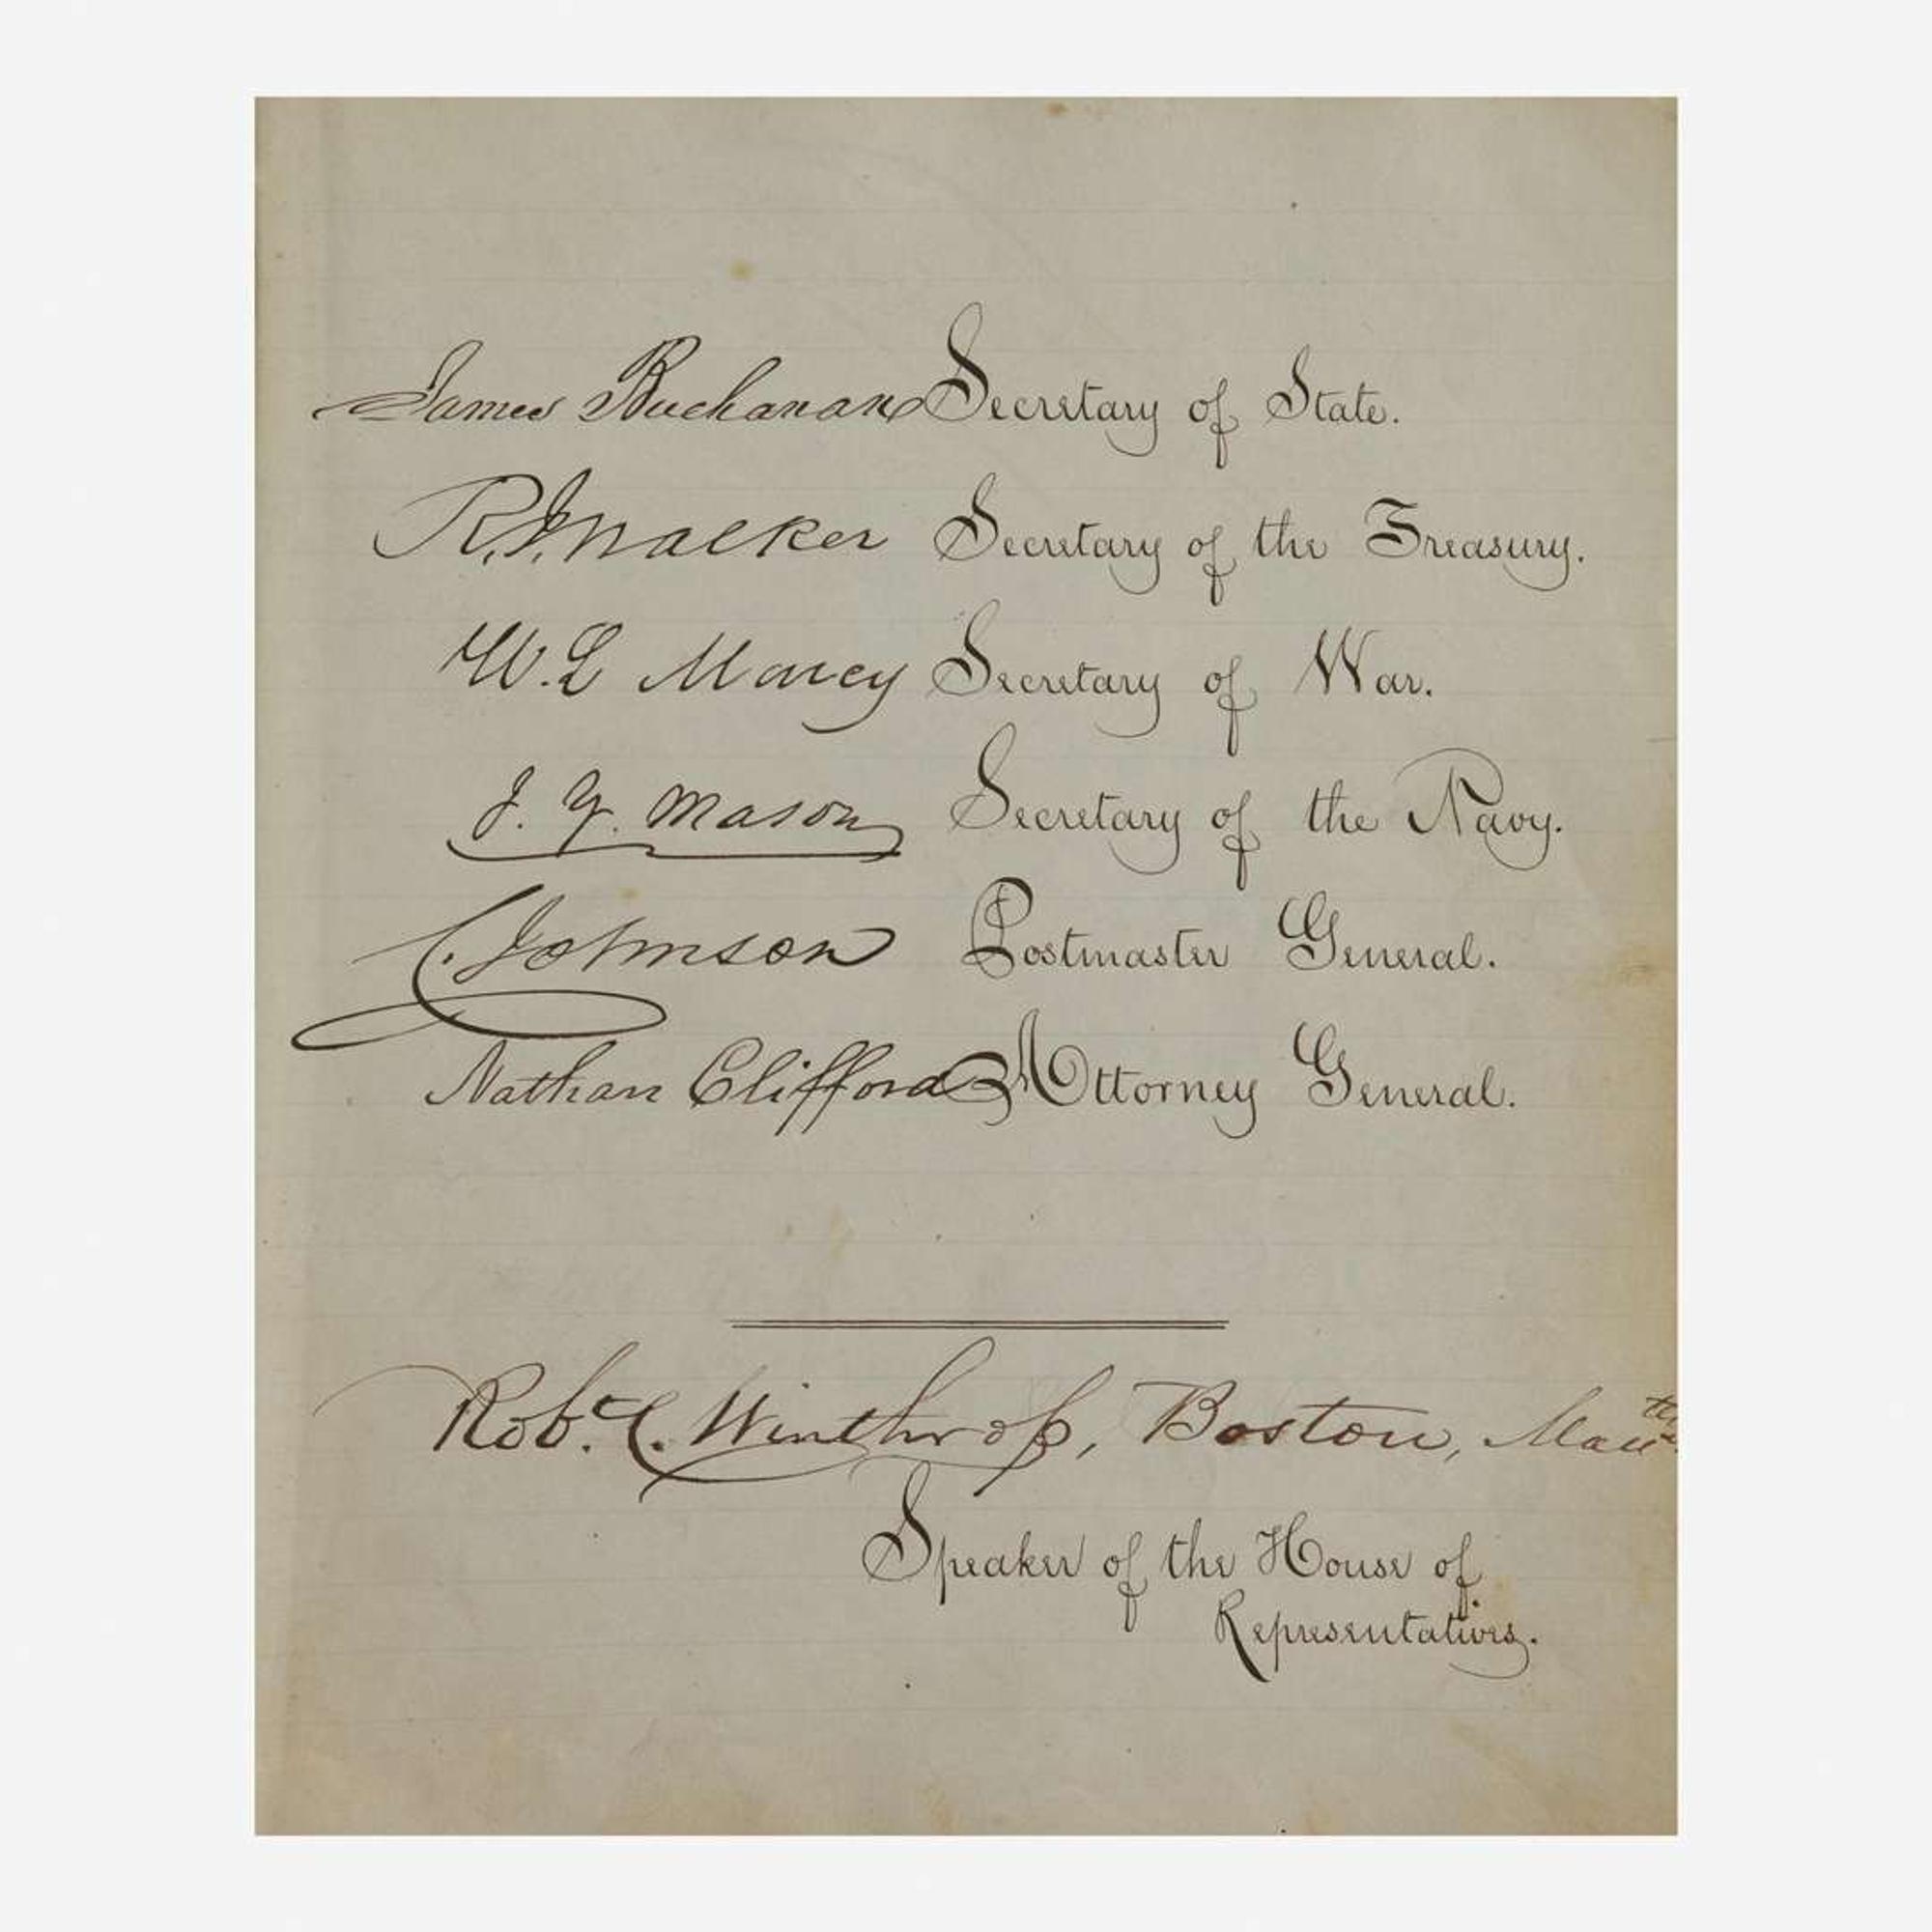 James Buchanan Secretary of State.
R. J. Walker Secretary of the Treasury.
W. L Marcy Secretary of War.
J. Y. Mason Secretary of the Navy.
C. Johnson Postmaster General.
Nathan Clifford Attorney General.
Robt. C. Winthrop, Boston,
Speaker of the House of
Representatives.